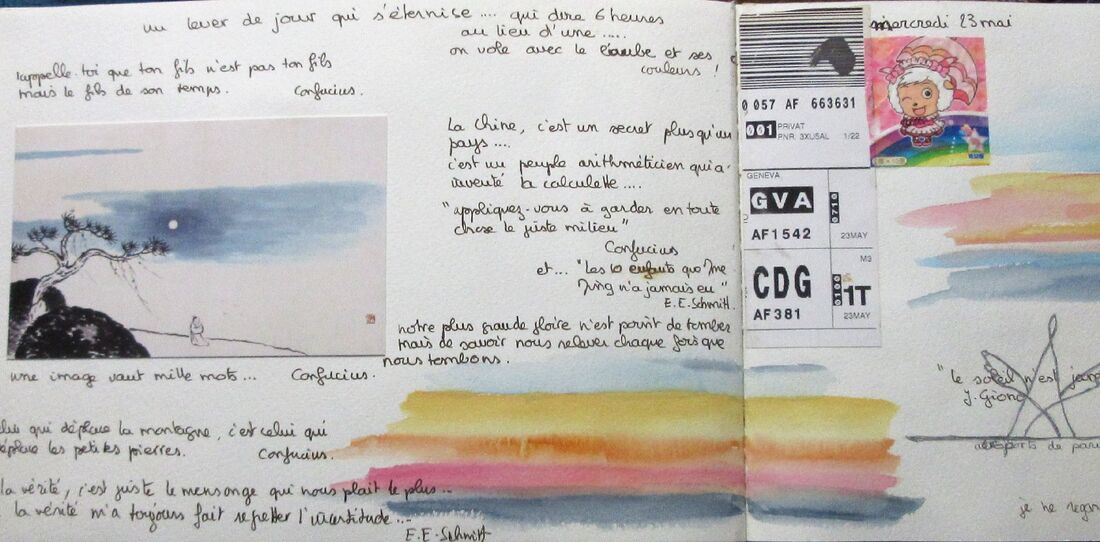 un lever de jour qui s'éternise .... qui dure 6 heures
au lieu d'une .....
on vole avec le l'aube et ses
couleurs !
rappelle-toi que ton fils n'est pas ton fils
mais le fils de son temps. Confucius.
La Chine, c'est un secret plus qu'un
pays ....
c'est un peuple arithméticien qui a
inventé la calculette ....
"appliquez-vous à garder en toute
chose le juste milieu"
Confucius
et ... "Les 10 enfants que Mme
Ming n'a jamais eu"
E.E. Schmitt
notre plus grande gloire n'est point de tomber
mais de savoir nous relever chaque fois que
nous tombons.
une image vaut mille mots ... Confucius.
celui qui déplace la montagne, c'est celui qui
déplace les petites pierres. Confucius.
la vérité, c'est juste le mensonge qui nous plait le plus ...
la vérité m'a toujours fait regretter l'incertitude ...
E.E. Schmitt
mercredi 23 mai
0 057 AF 663631
001 PRIVAT
PNR: 3XU5AL 1/22
GENEVA
GVA 0710
AF1542 23MAY
M3
CDG 0100 1T
AF381 23MAY
"le soleil n'est jamais
J. Giono
aéroports de paris
je ne regar